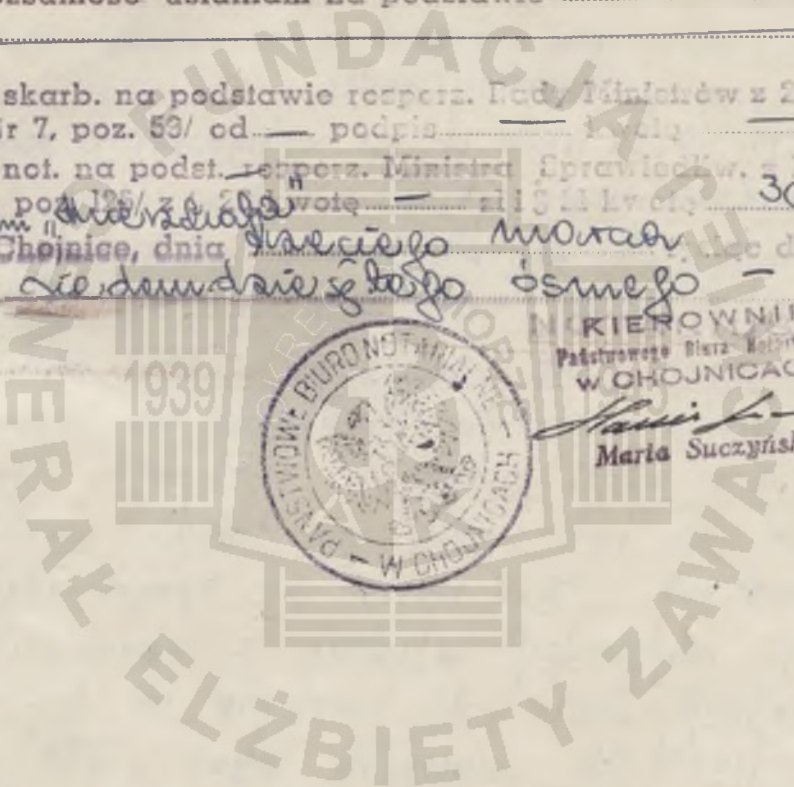 tożsamość ustaliłam na podstawie
skarb. na podstawie rozporz. Rady Ministrów z 2
r 7, poz. 53/ od — podpis — —
not. na podst. — rozporz. Ministra Sprawiedliw. z
poz. 125/ z § 2 kwotę — zł i § kwotę 30
Chojnice, dnia trzeciego marca
siedemdziesiątego ósmego —
KIEROWNIK
Państwowego Biura
W CHOJNICAC
Maria Suczyńsk
PAŃSTWOWE BIURO NOTARIALNE — W CHOJNICACH —
FUNDACJA GENERAŁ ELŻBIETY ZAWACKIEJ
1939